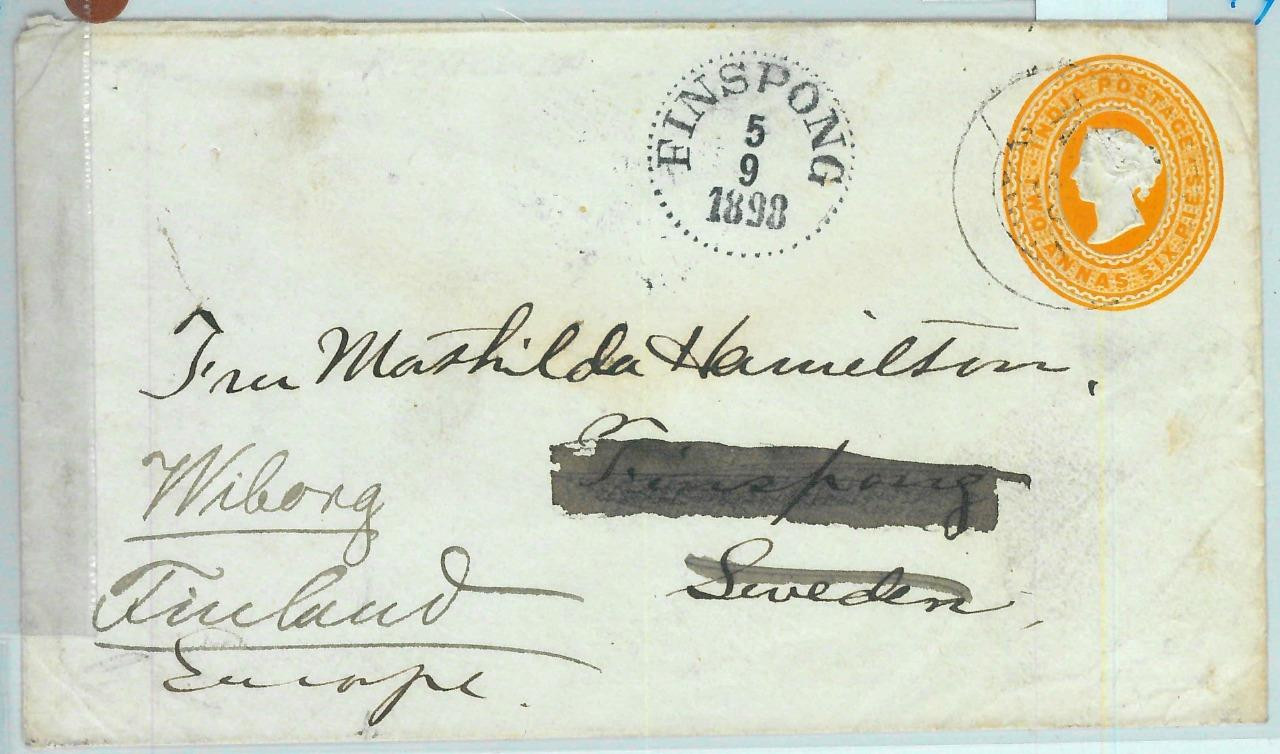 FINSPONG
5
9
1898
INDIA POSTAGE
TWO ANNAS SIX PIES
Fru Mathilda Hamilton,
Finspong
Sweden,
Wiborg
Finland
Europe.